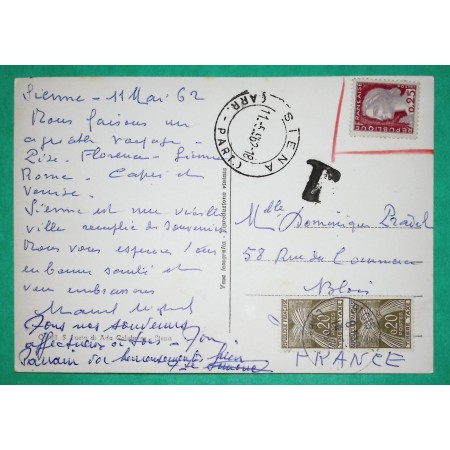 Sienne - 11 Mai 62
Nous faisons un
agréable voyage.
Pise. Florence - Sienne
Rome - Capri et
Venise.
Sienne est une vieille
ville remplie de souvenirs
Nous vous espérons tous
en bonne santé et
vous embrassons
Marcel
Tous nos souvenirs
affectueux à tous -
SIENA
11-5-62-18
ARR.-PART.
REPUBLIQUE FRANÇAISE
0,25F
T
Mdlle Dominique Pradel
58 Rue du Commerce
Blois
0,20
0,20
FRANCE